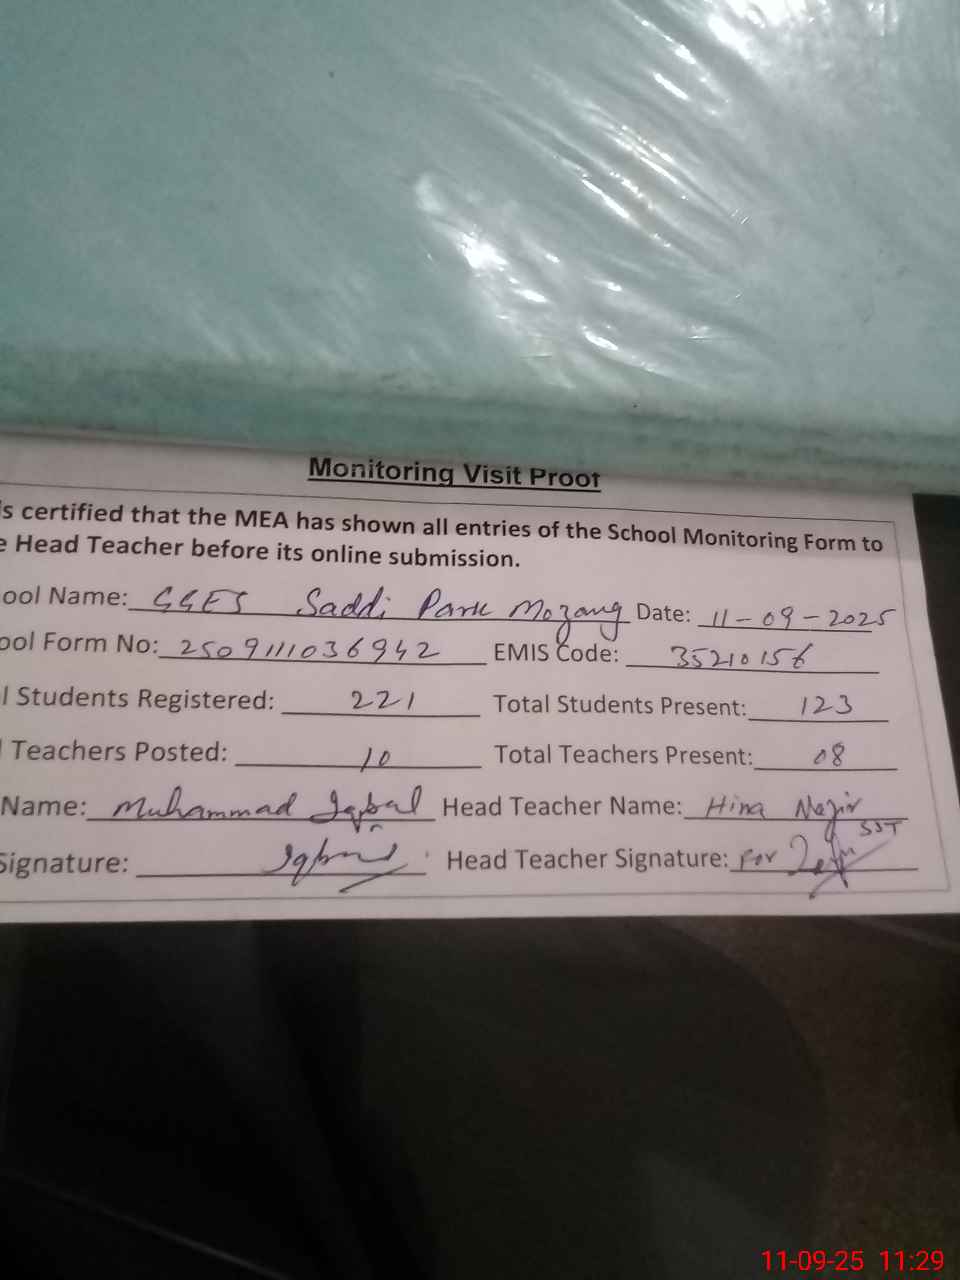 Monitoring Visit Proof
s certified that the MEA has shown all entries of the School Monitoring Form to
e Head Teacher before its online submission.
ool Name: GGES Saddi Park Mozang Date: 11-09-2025
ool Form No: 2509111036942 EMIS Code: 35210156
l Students Registered: 221 Total Students Present: 123
Teachers Posted: 10 Total Teachers Present: 08
Name: Muhammad Iqbal Head Teacher Name: Hina Nazir
SST
Signature: Iqbal Head Teacher Signature: For
11-09-25 11:29